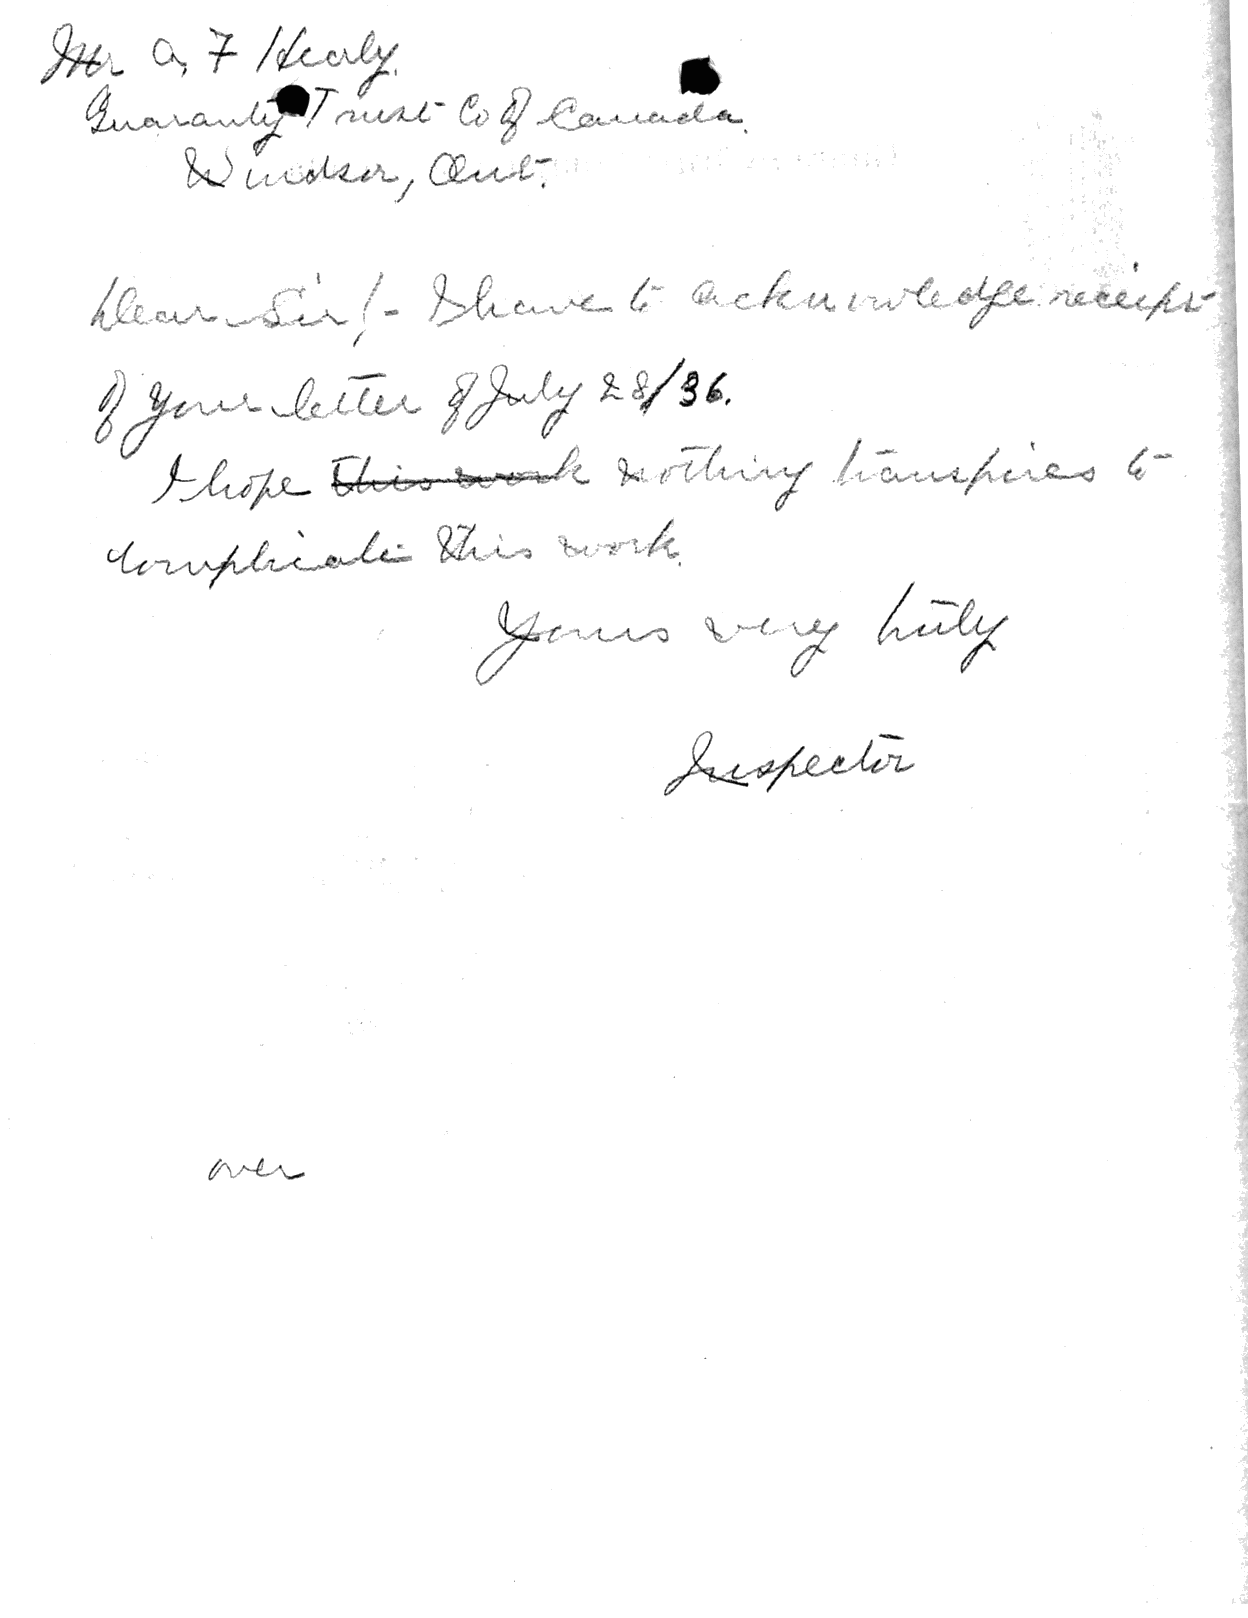 Mr A, F Healy.
Guaranty Trust Co of Canada.
Windsor, Ont.
Dear Sir/- I have to acknowledge receipt
of your letter of July 28/36.
I hope this work nothing transpires to
complicate this work.
Yours very truly
Inspector
over